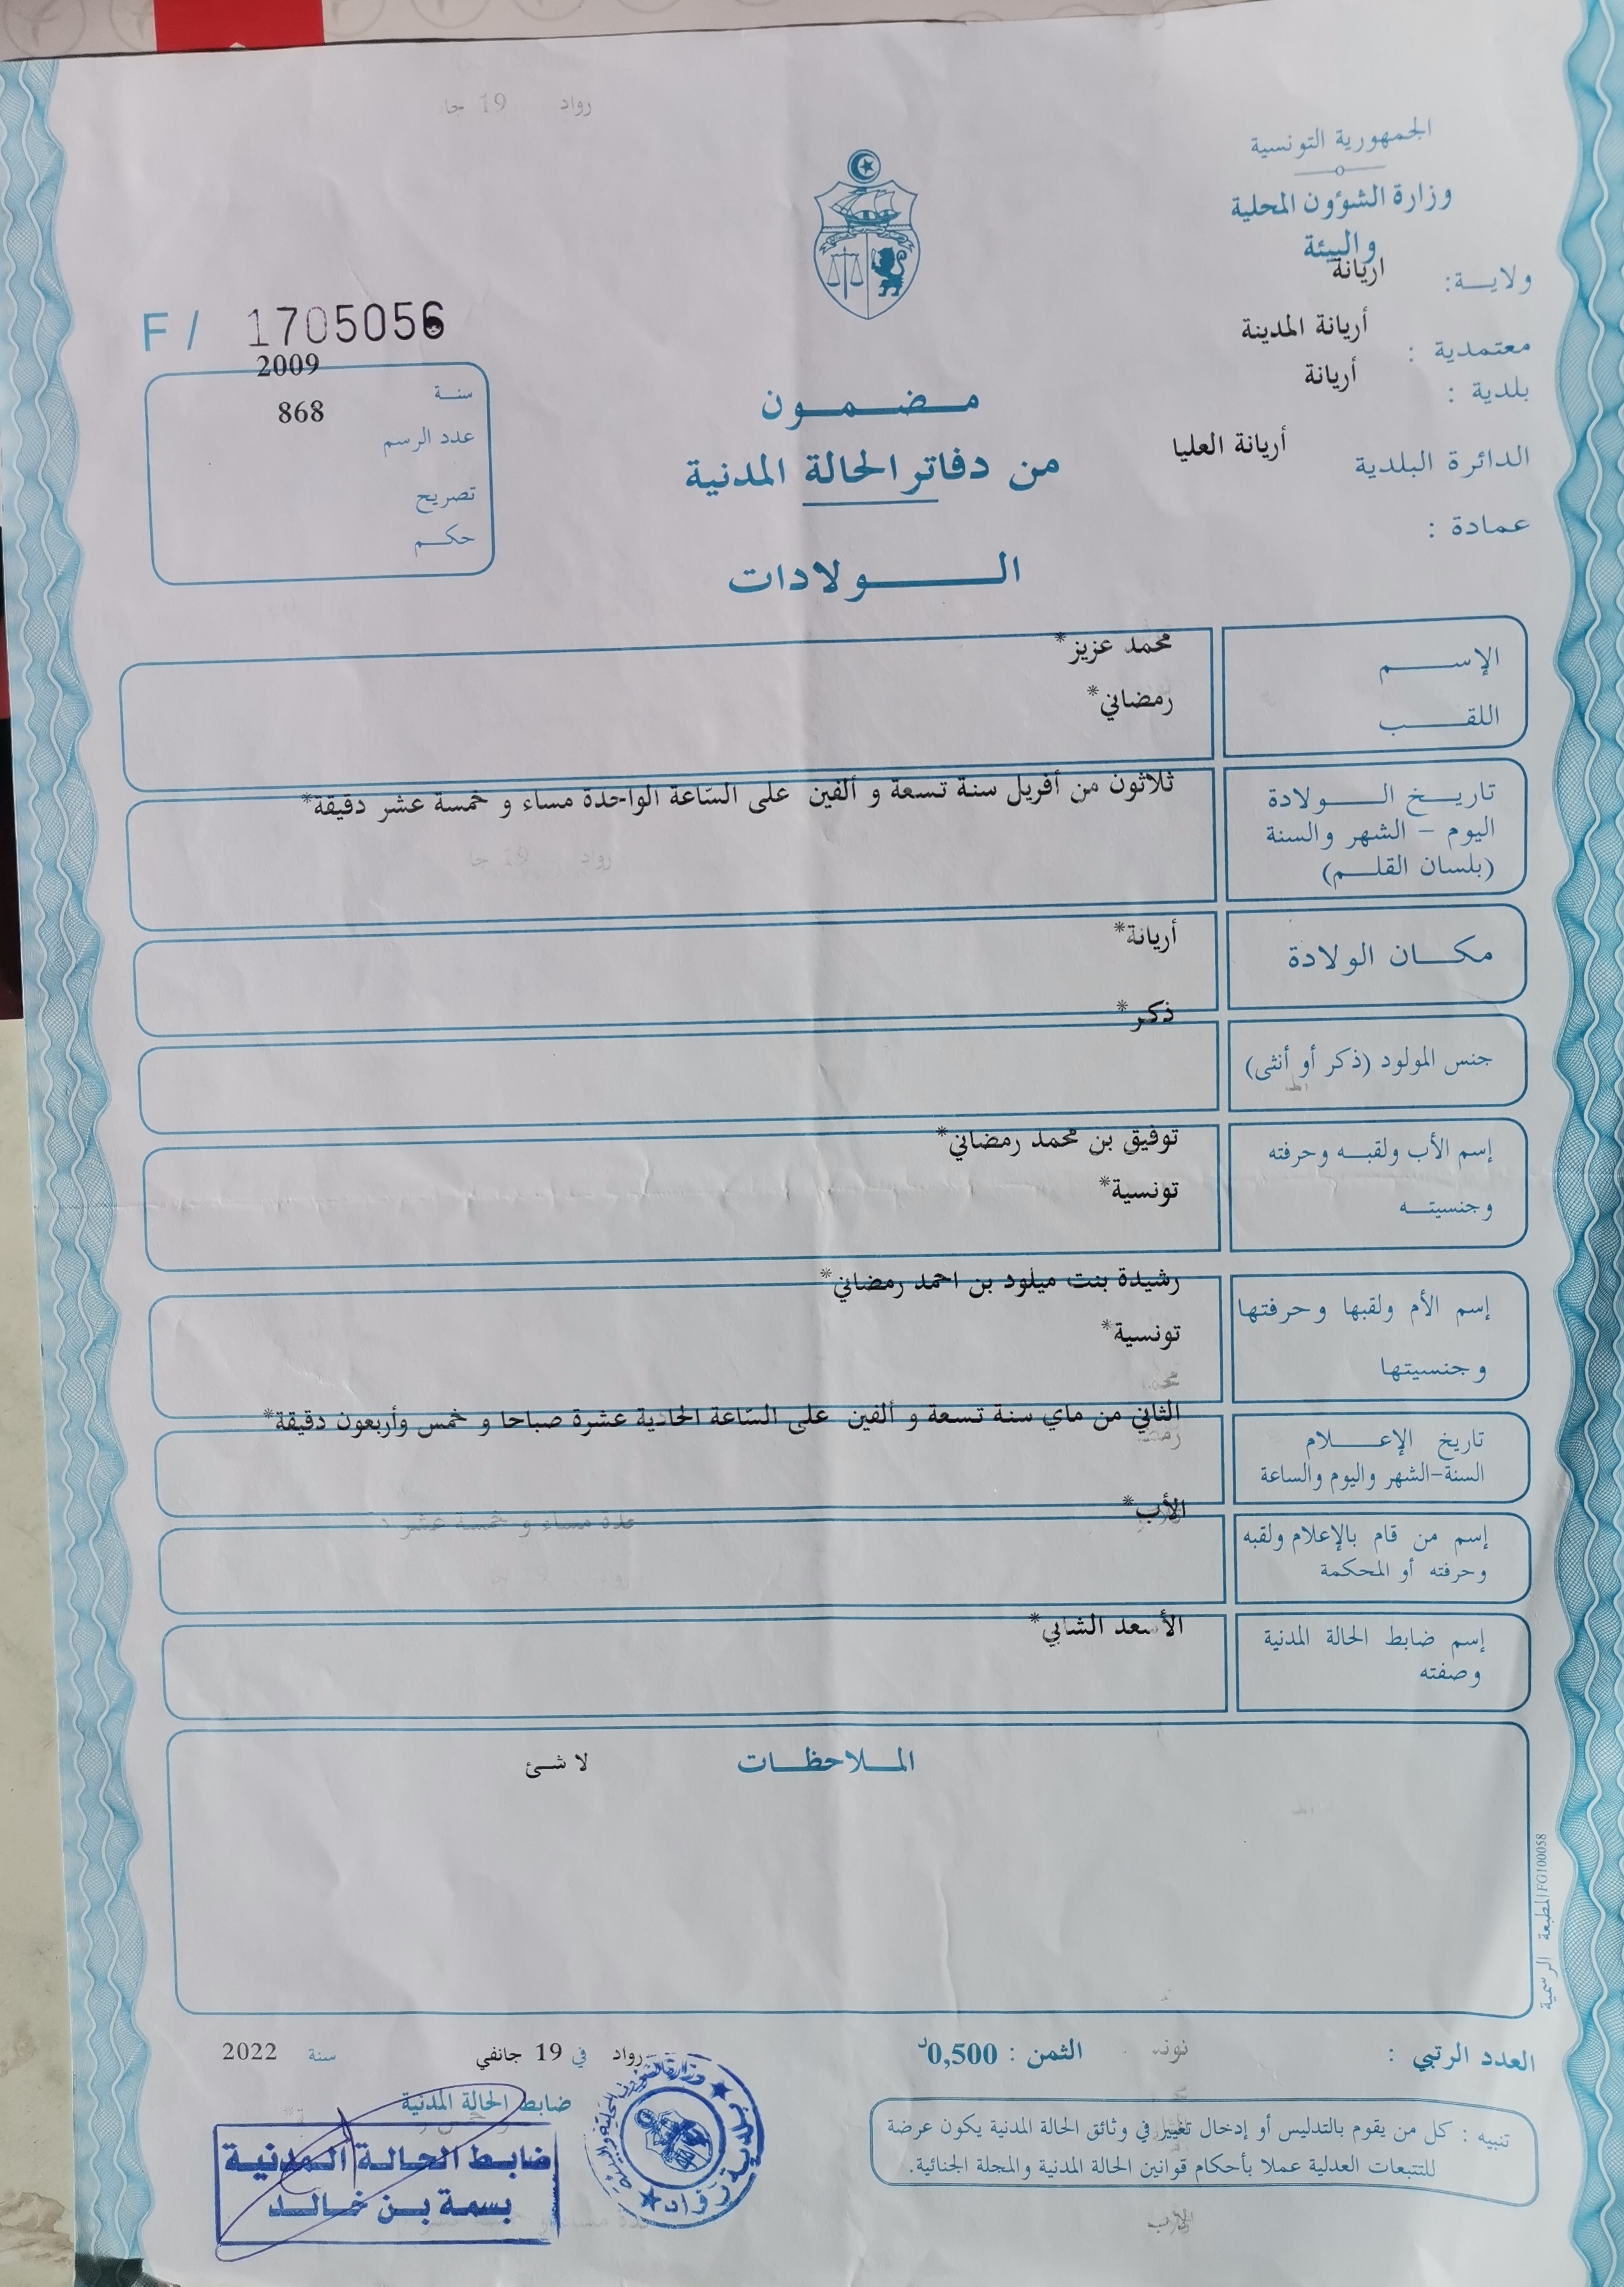 رواد 19 جا
الجمهورية التونسية
وزارة الشؤون المحلية
والبيئة
ولاية: اريانة
معتمدية : أريانة المدينة
بلدية : أريانة
الدائرة البلدية أريانة العليا
عمادة :
F / 1705056
سنة 2009
عدد الرسم 868
تصريح
حكم
مضمون
من دفاتر الحالة المدنية
الولادات
الإسم محمد عزيز*
اللقب رمضاني*
تاريخ الولادة
اليوم - الشهر والسنة
(بلسان القلم)
ثلاثون من أفريل سنة تسعة و ألفين على السّاعة الواحدة مساء و خمسة عشر دقيقة*
رواد 19 جا
مكان الولادة أريانة*
جنس المولود (ذكر أو أنثى) ذكر*
إسم الأب ولقبه وحرفته
وجنسيته
توفيق بن محمد رمضاني*
تونسية*
إسم الأم ولقبها وحرفتها
وجنسيتها
رشيدة بنت ميلود بن احمد رمضاني*
تونسية*
تاريخ الإعلام
السنة-الشهر واليوم والساعة
الثاني من ماي سنة تسعة و ألفين على السّاعة الحادية عشرة صباحا و خمس وأربعون دقيقة*
إسم من قام بالإعلام ولقبه
وحرفته أو المحكمة
الأب*
إسم ضابط الحالة المدنية
وصفته
الأسعد الشابي*
الملاحظات لا شئ
المطبعة الرسمية FG100058
العدد الرتبي :
الثمن : 0,500د
رواد في 19 جانفي سنة 2022
ضابط الحالة المدنية
ضابط الحالة المدنية
بسمة بن خالد
وزارة الشؤون المحلية والبيئة
بلدية رواد
تنبيه : كل من يقوم بالتدليس أو إدخال تغيير في وثائق الحالة المدنية يكون عرضة
للتتبعات العدلية عملا بأحكام قوانين الحالة المدنية والمجلة الجنائية.